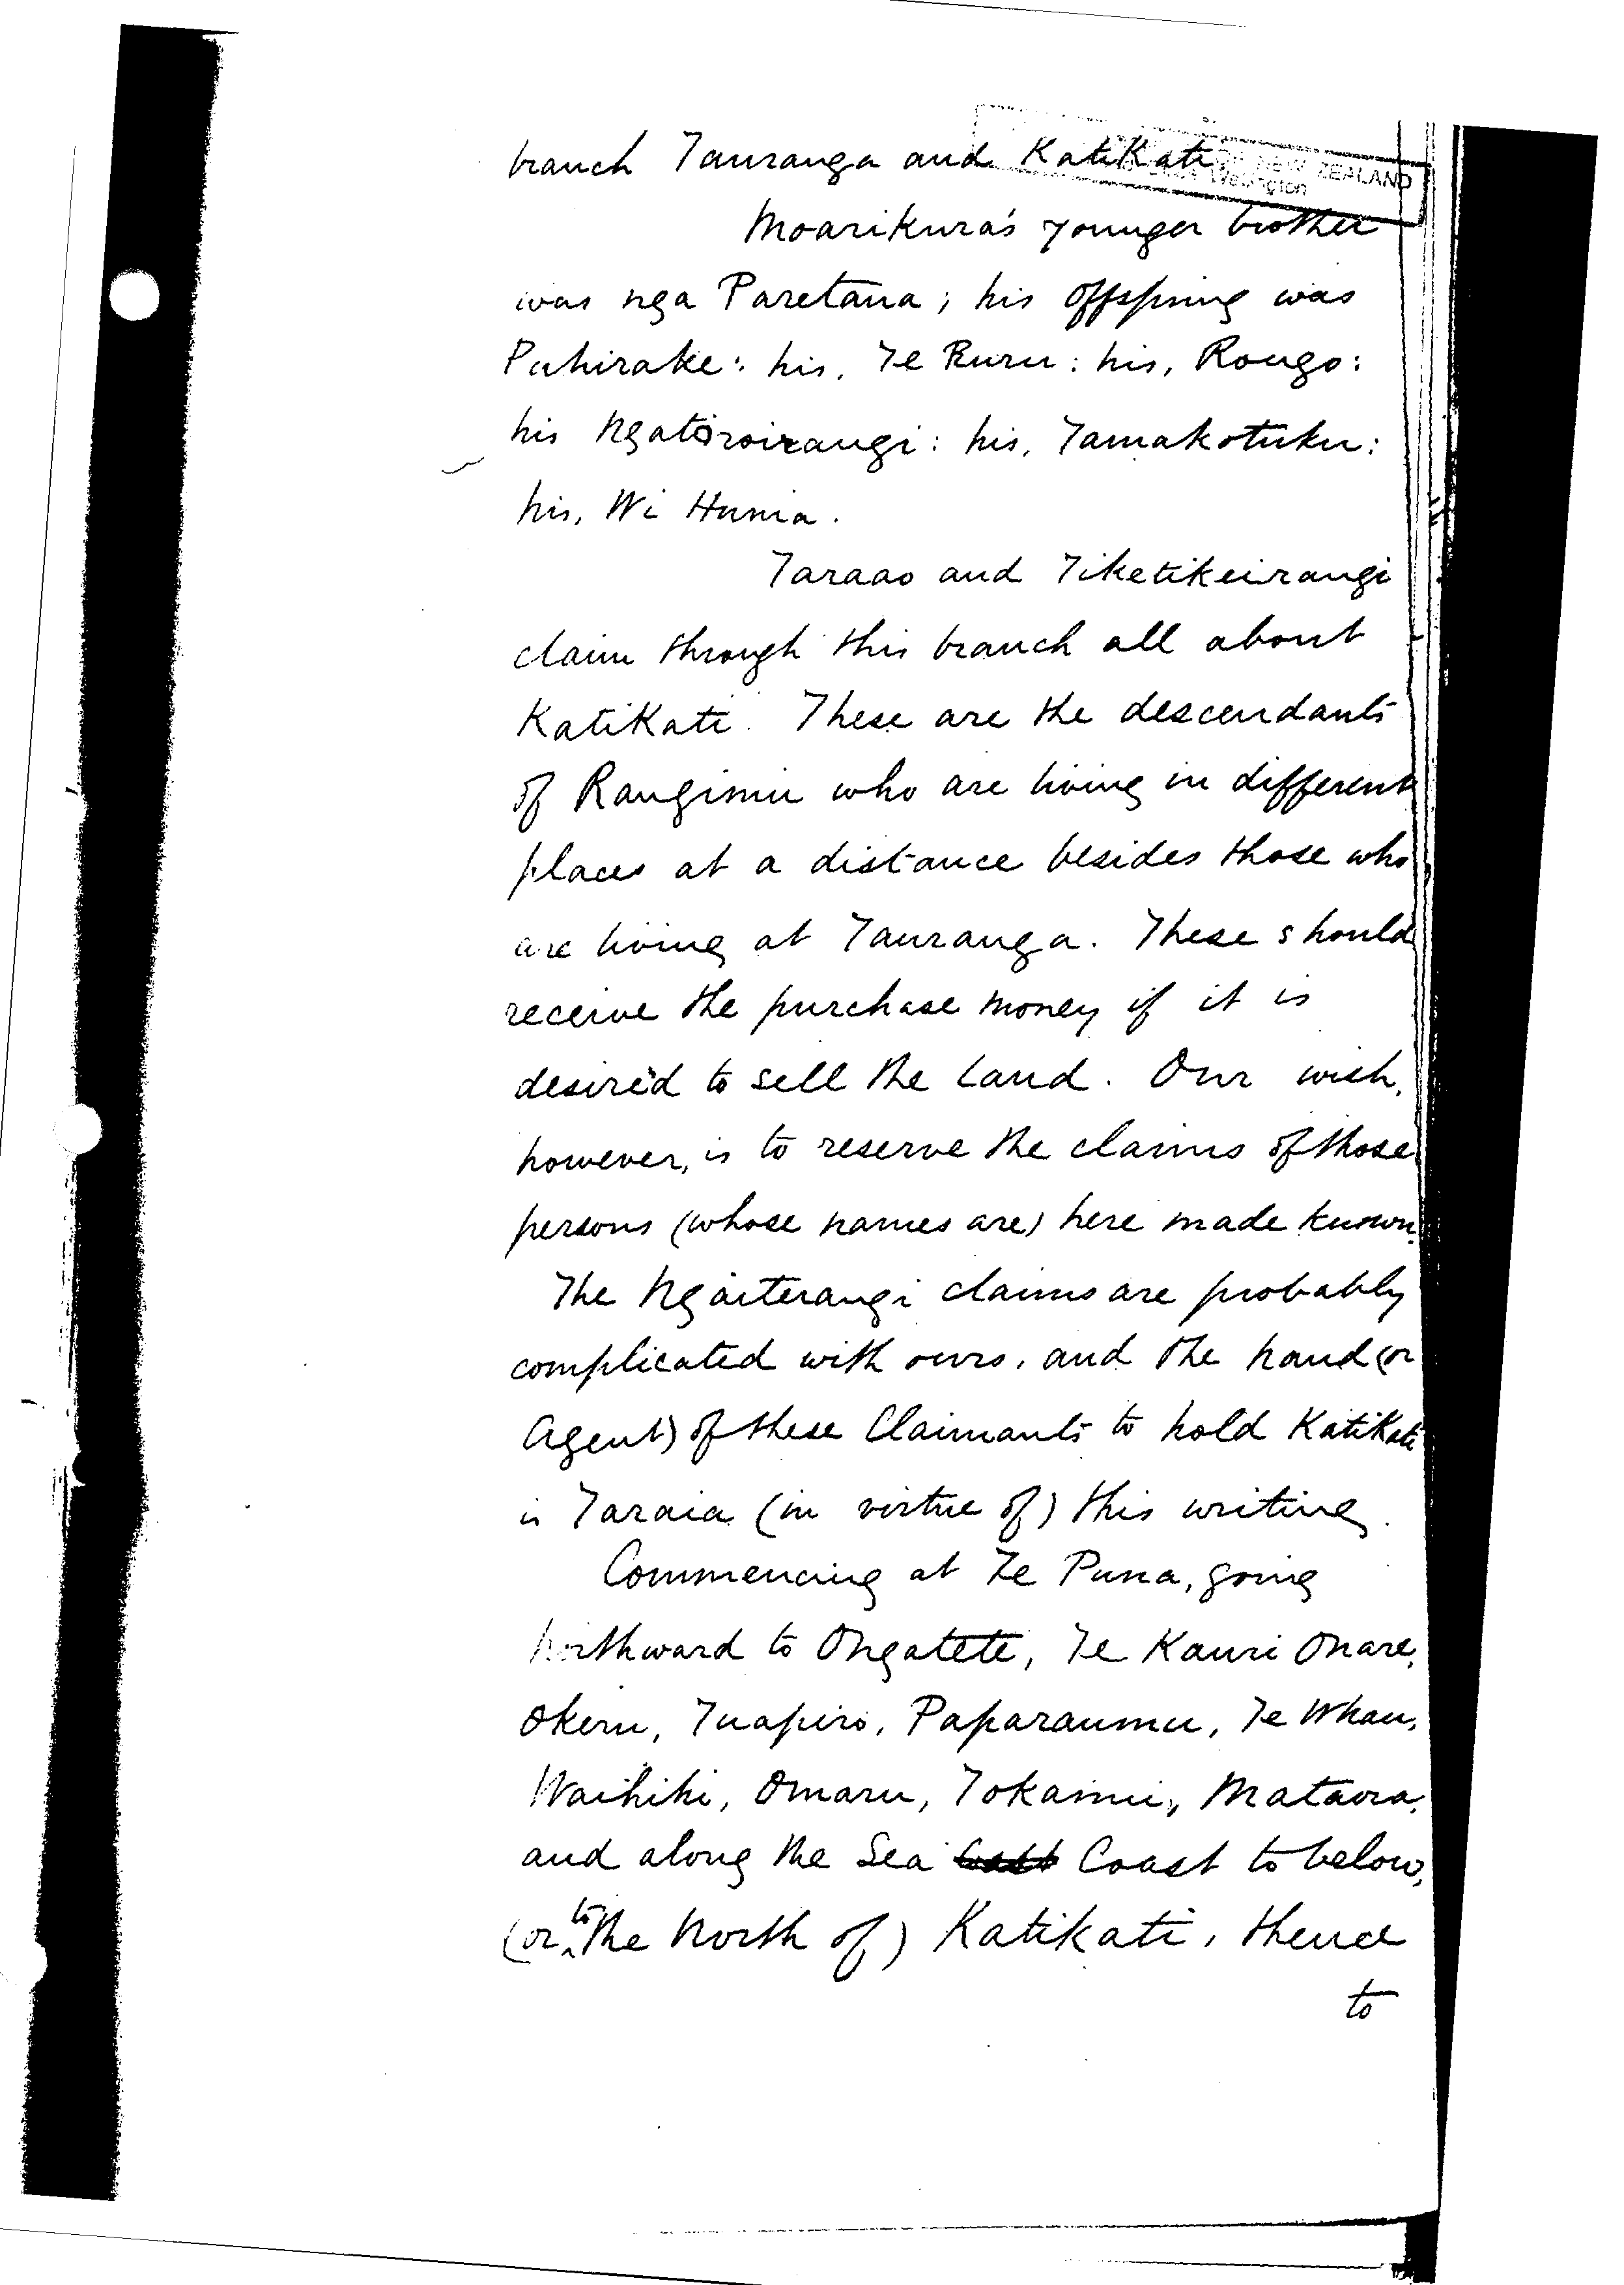 branch Tauranga and KatiKati.
NEW ZEALAND
Wellington
Moarikura's younger brother
was nga Paretana; his offspring was
Puhirake: his, Te Ruru: his, Rongo:
his Ngatoroirangi: his, Tamakotuku:
his, Wi Hunia.
Taraao and Tiketikeirangi
claim through this branch all about
KatiKati. These are the descendants
of Rangimu who are living in different
places at a distance besides those who
are living at Tauranga. These should
receive the purchase money if it is
desired to sell the land. Our wish,
however, is to reserve the claims of those
persons (whose names are) here made known.
The Ngaiterangi claims are probably
complicated with ours, and the hand (or
Agent) of these Claimants to hold KatiKati
is Taraia (in virtue of) this writing.
Commencing at Te Puna, going
northward to Ongatete, Te Kauri Onare,
Okeru, Tuapiro, Paparaumu, Te Whau,
Waihihi, Omaru, Tokamui, Mataora,
and along the Sea Coast to below,
(or to the North of) Katikati, thence
to